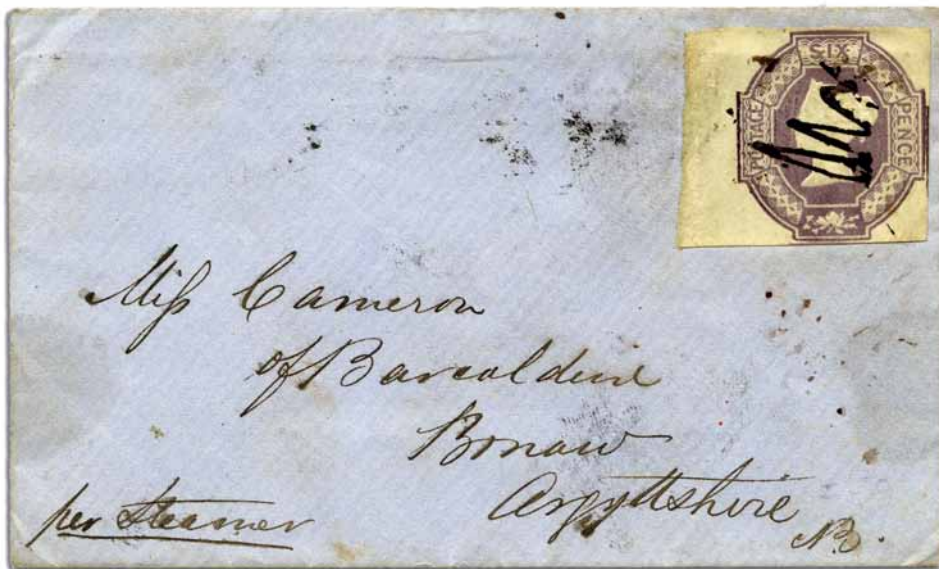 SIX
POSTAGE
PENCE
Miss Cameron
of Barcaldine
Bonaw
Argyllshire
N.B.
per Steamer